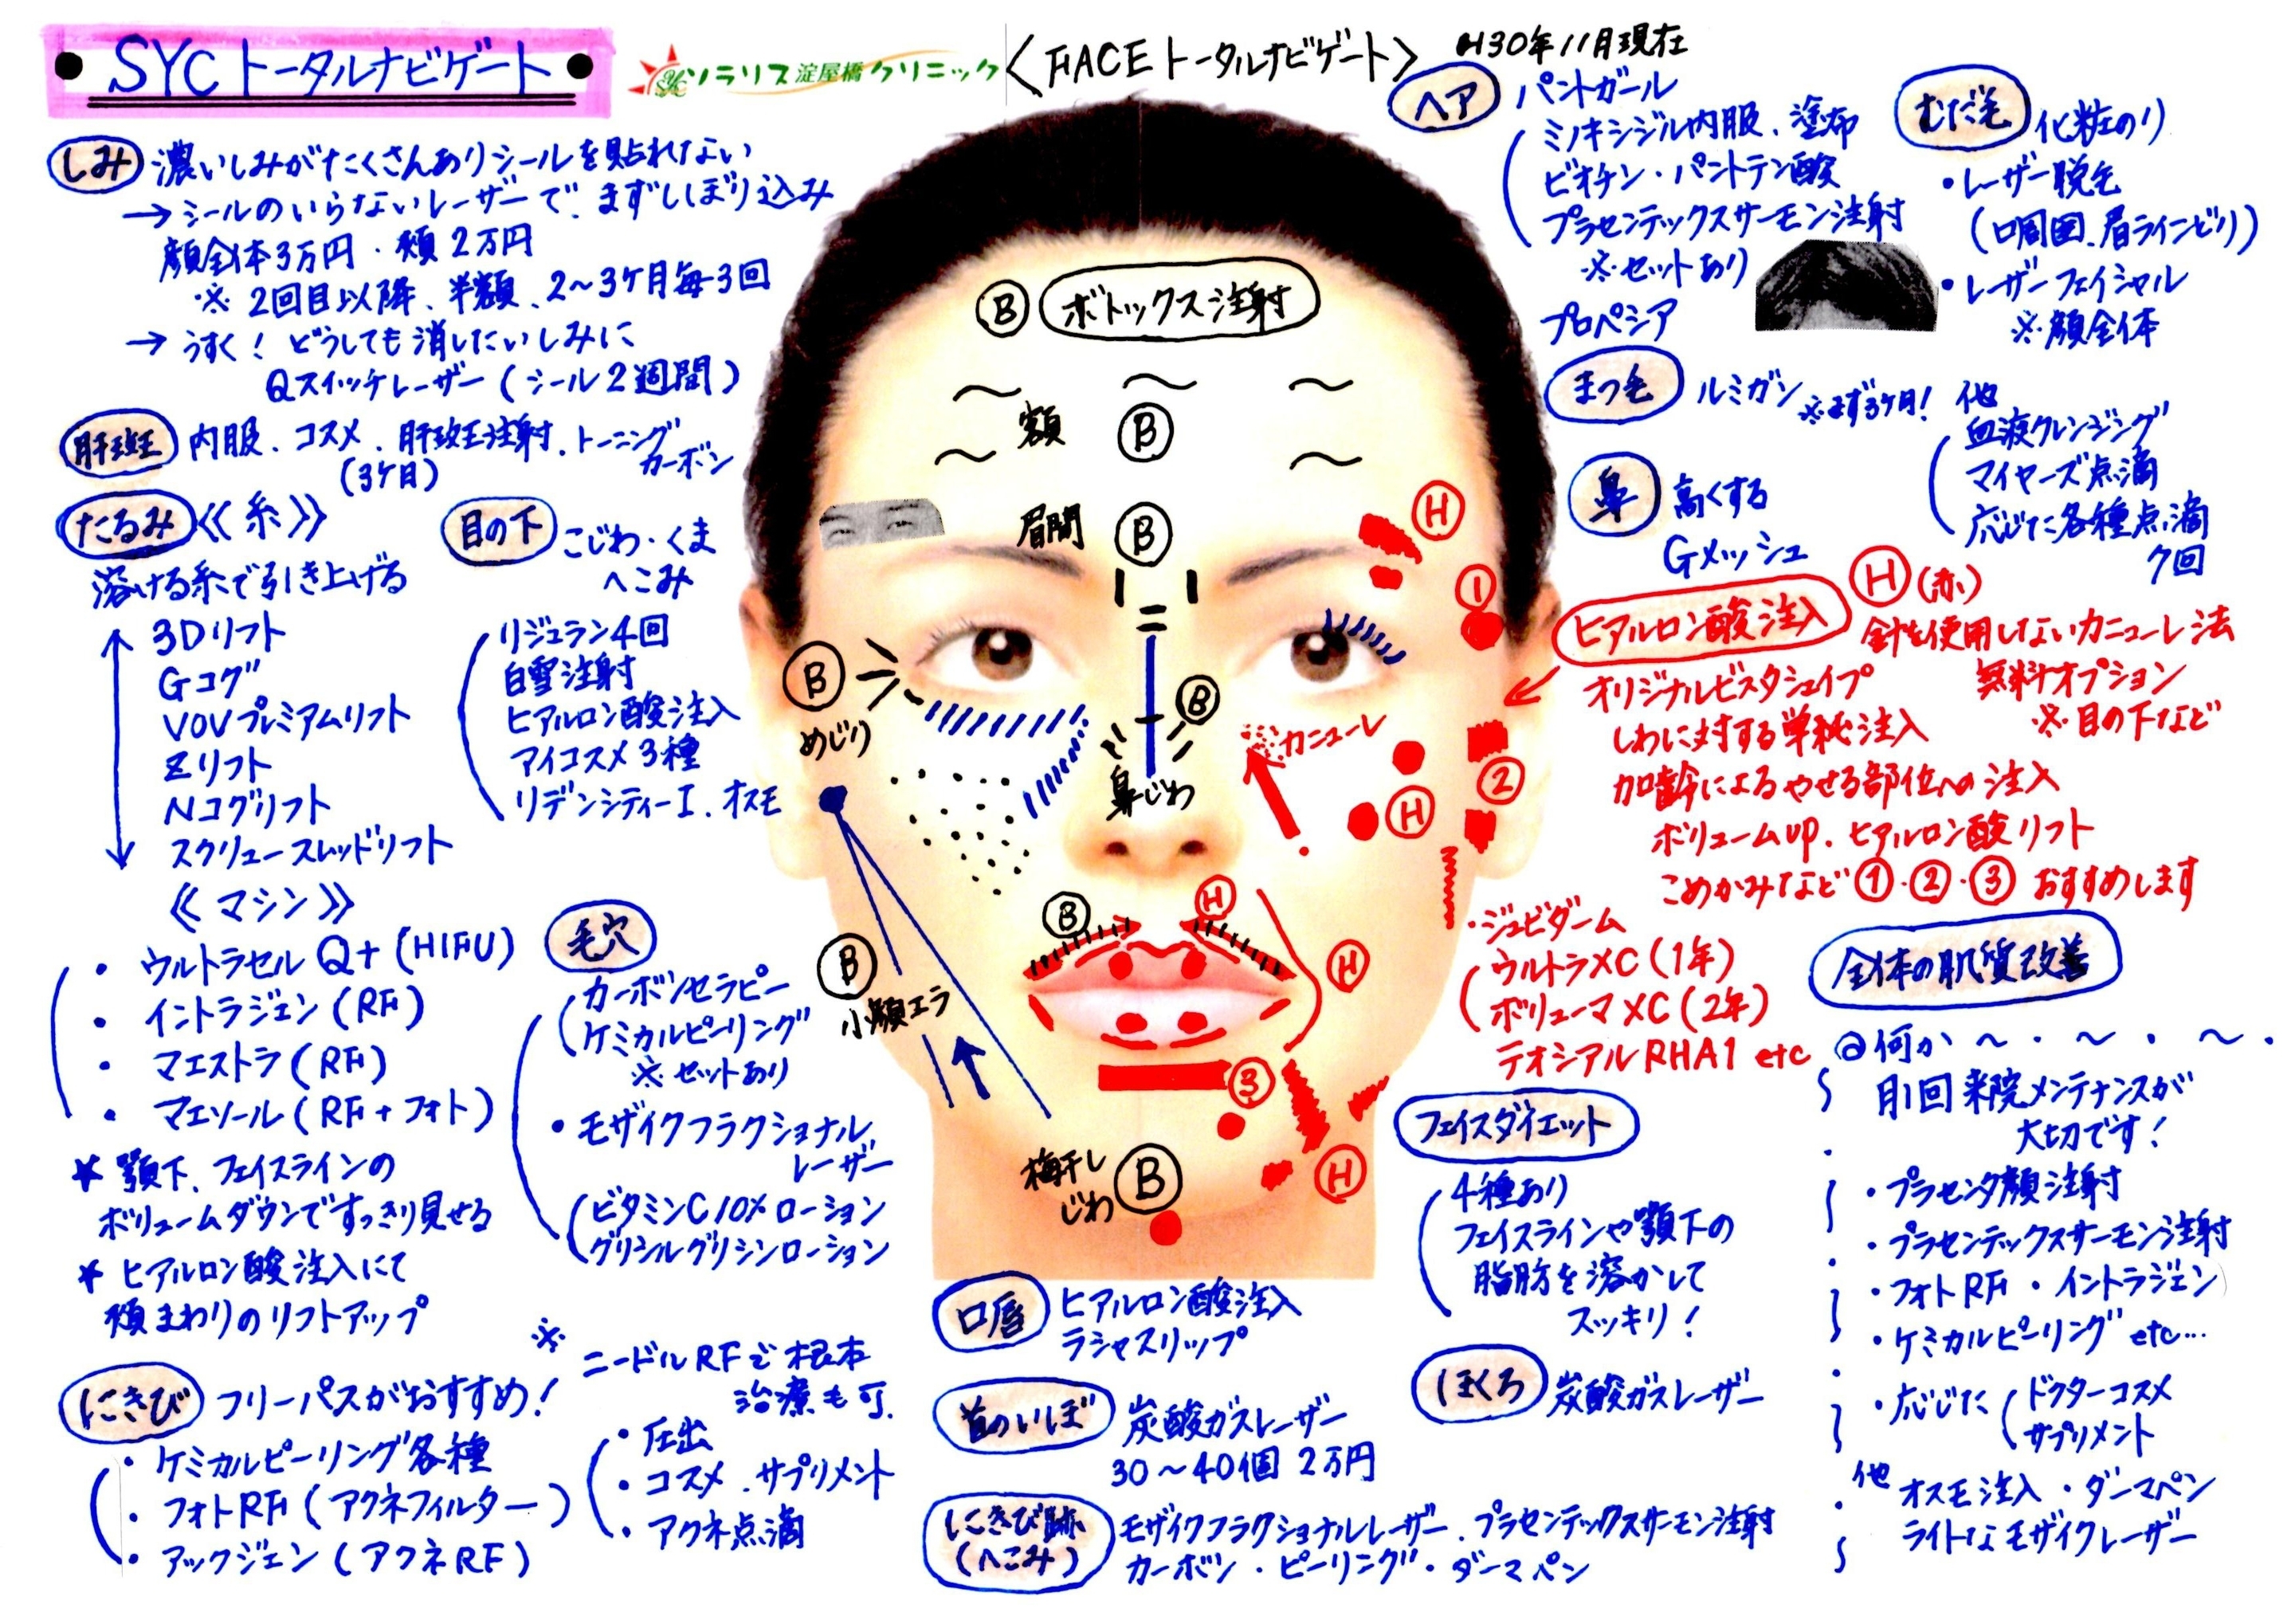 SYCトータルナビゲート
SYC ソラリス淀屋橋クリニック
〈FACEトータルナビゲート〉
H30年11月現在
しみ 濃いしみがたくさんありシールを貼れない
→シールのいらないレーザーで、まずしぼり込み
顔全体3万円・頬2万円
※2回目以降、半額、2~3ケ月毎3回
→うすく!どうしても消したいしみに
Qスイッチレーザー(シール2週間)
肝斑 内服、コスメ、肝斑注射、トーニング
カーボン
(3ケ月)
たるみ 《糸》
溶ける糸で引き上げる
3Dリフト
Gコグ
VOVプレミアムリフト
Zリフト
Nコグリフト
スクリュースレッドリフト
《マシン》
・ウルトラセルQ+(HIFU)
・イントラジェン(RF)
・マエストラ(RF)
・マエソール(RF+フォト)
* 顎下、フェイスラインの
ボリュームダウンですっきり見せる
* ヒアルロン酸注入にて
頬まわりのリフトアップ
目の下 こじわ・くま
へこみ
リジュラン4回
白雪注射
ヒアルロン酸注入
アイコスメ3種
リデンシティーI、オスモ
毛穴
カーボンセラピー
ケミカルピーリング
※セットあり
・モザイクフラクショナル
レーザー
ビタミンC10%ローション
グリシルグリシンローション
にきび フリーパスがおすすめ!
・ケミカルピーリング各種
・フォトRF(アクネフィルター)
・アックジェン(アクネRF)
※
ニードルRFで根本
治療も可
・圧出
・コスメ、サプリメント
・アクネ点滴
B ボトックス注射
額 B
眉間 B
B
めじり
B
鼻じわ
カニューレ
H
1
2
H
B
H
H
B
小顔エラ
3
H
梅干し
じわ
B
ヘア パントガール
ミノキシジル内服、塗布
ビオチン・パントテン酸
プラセンテックスサーモン注射
※セットあり
プロペシア
むだ毛 化粧のり
・レーザー脱毛
(口周囲、眉ラインどり)
・レーザーフェイシャル
※顔全体
まつ毛 ルミガン ※まず3ケ月!
他
血液クレンジング
マイヤーズ点滴
応じた各種点滴
7回
鼻 高くする
Gメッシュ
ヒアルロン酸注入 H(赤)
針を使用しないカニューレ法
無料オプション
※目の下など
オリジナルビスタシェイプ
しわに対する単純注入
加齢によるやせる部位への注入
ボリュームup、ヒアルロン酸リフト
こめかみなど①・②・③おすすめします
・ジュビダーム
ウルトラXC(1年)
ボリューマXC(2年)
テオシアルRHA1 etc
全体の肌質改善
@何か~・~・~・
月1回来院メンテナンスが
大切です!
・プラセンタ顔注射
・プラセンテックスサーモン注射
・フォトRF・イントラジェン
・ケミカルピーリング etc…
・応じた
ドクターコスメ
サプリメント
他
オスモ注入・ダーマペン
ライトなモザイクレーザー
フェイスダイエット
4種あり
フェイスラインや顎下の
脂肪を溶かして
スッキリ!
ほくろ 炭酸ガスレーザー
口唇 ヒアルロン酸注入
ラシャスリップ
首のいぼ 炭酸ガスレーザー
30~40個 2万円
にきび跡
(へこみ)
モザイクフラクショナルレーザー、プラセンテックスサーモン注射
カーボン・ピーリング・ダーマペン